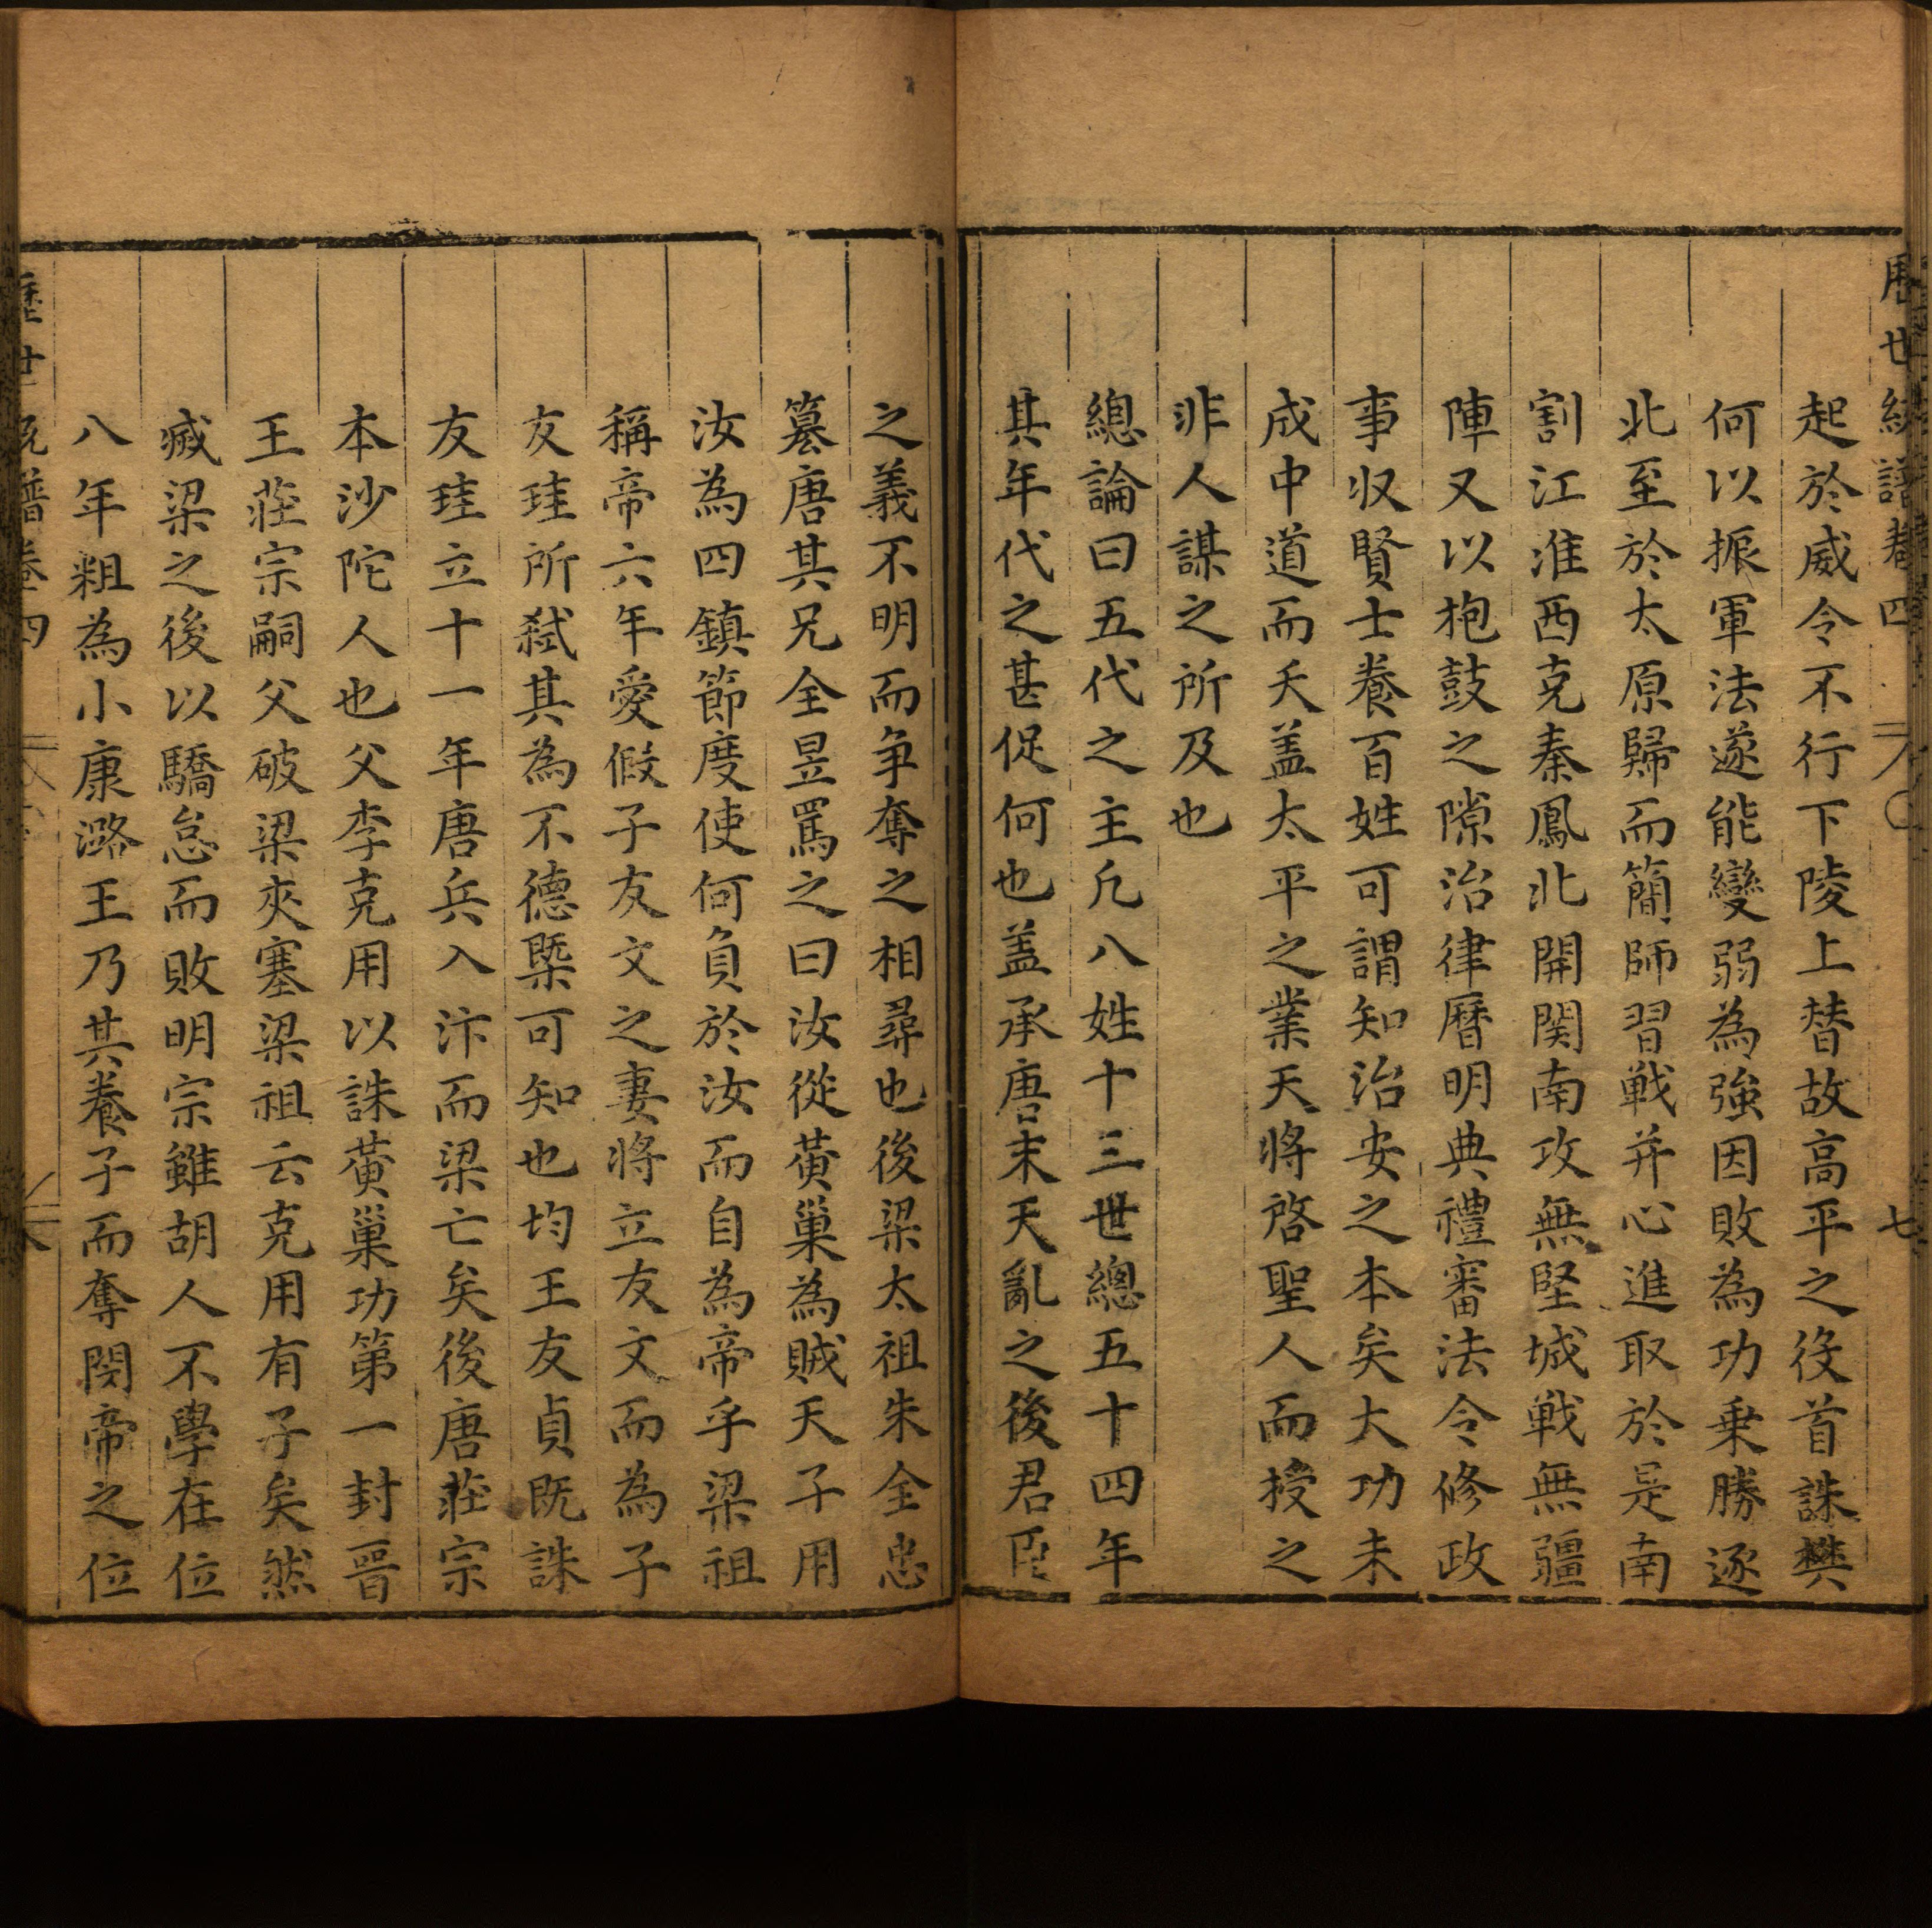 歷世統譜卷四 七
起於威令不行下陵上替故高平之役首誅樊
何以振軍法遂能變弱為強因敗為功乗勝逐
北至於太原歸而簡師習戦并心進取於是南
割江淮西克秦鳳北開関南攻無堅城戦無疆
陣又以枹鼓之隙治律曆明典禮審法令修政
事収賢士養百姓可謂知治安之本矣大功未
成中道而夭盖太平之業天將啓聖人而授之
非人謀之所及也
總論曰五代之主凢八姓十三世總五十四年
其年代之甚促何也盖承唐末天亂之後君臣
之義不明而争奪之相尋也後梁太祖朱全忠
簒唐其兄全昱罵之曰汝從黄巢為賊天子用
汝為四鎮節度使何負於汝而自為帝乎梁祖
稱帝六年愛假子友文之妻將立友文而為子
友珪所弑其為不德槩可知也均王友貞既誅
友珪立十一年唐兵入汴而梁亡矣後唐莊宗
本沙陀人也父李克用以誅黄巢功第一封晋
王莊宗嗣父破梁夾塞梁祖云克用有子矣然
滅梁之後以驕怠而敗明宗雖胡人不學在位
八年粗為小康潞王乃其養子而奪閔帝之位
歷世統譜卷四